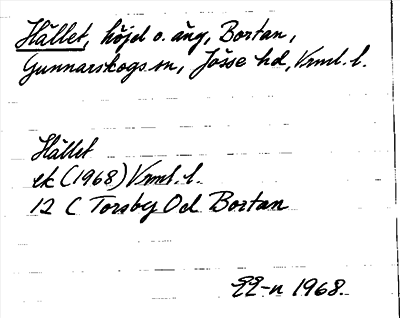 Hället, höjd o. äng, Bortan,
Gunnarskogs sn, Jösse hd, Vrml. l.
Hället
ek (1968) Vrml. l.
12 C Torsby Od Bortan
1968.